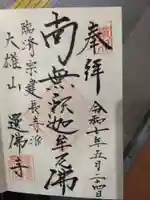 奉拝
令和七年五月二四日
南無釈迦牟尼佛
臨済宗建長寺派
大雄山
選佛寺